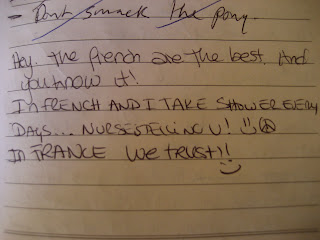 - Don't smack the pony.
Hey. The french are the best. And
you know it!
In FRENCH AND I TAKE SHOWER EVERY
DAYS... NURSESTELLING U!
In FRANCE WE TRUST!!